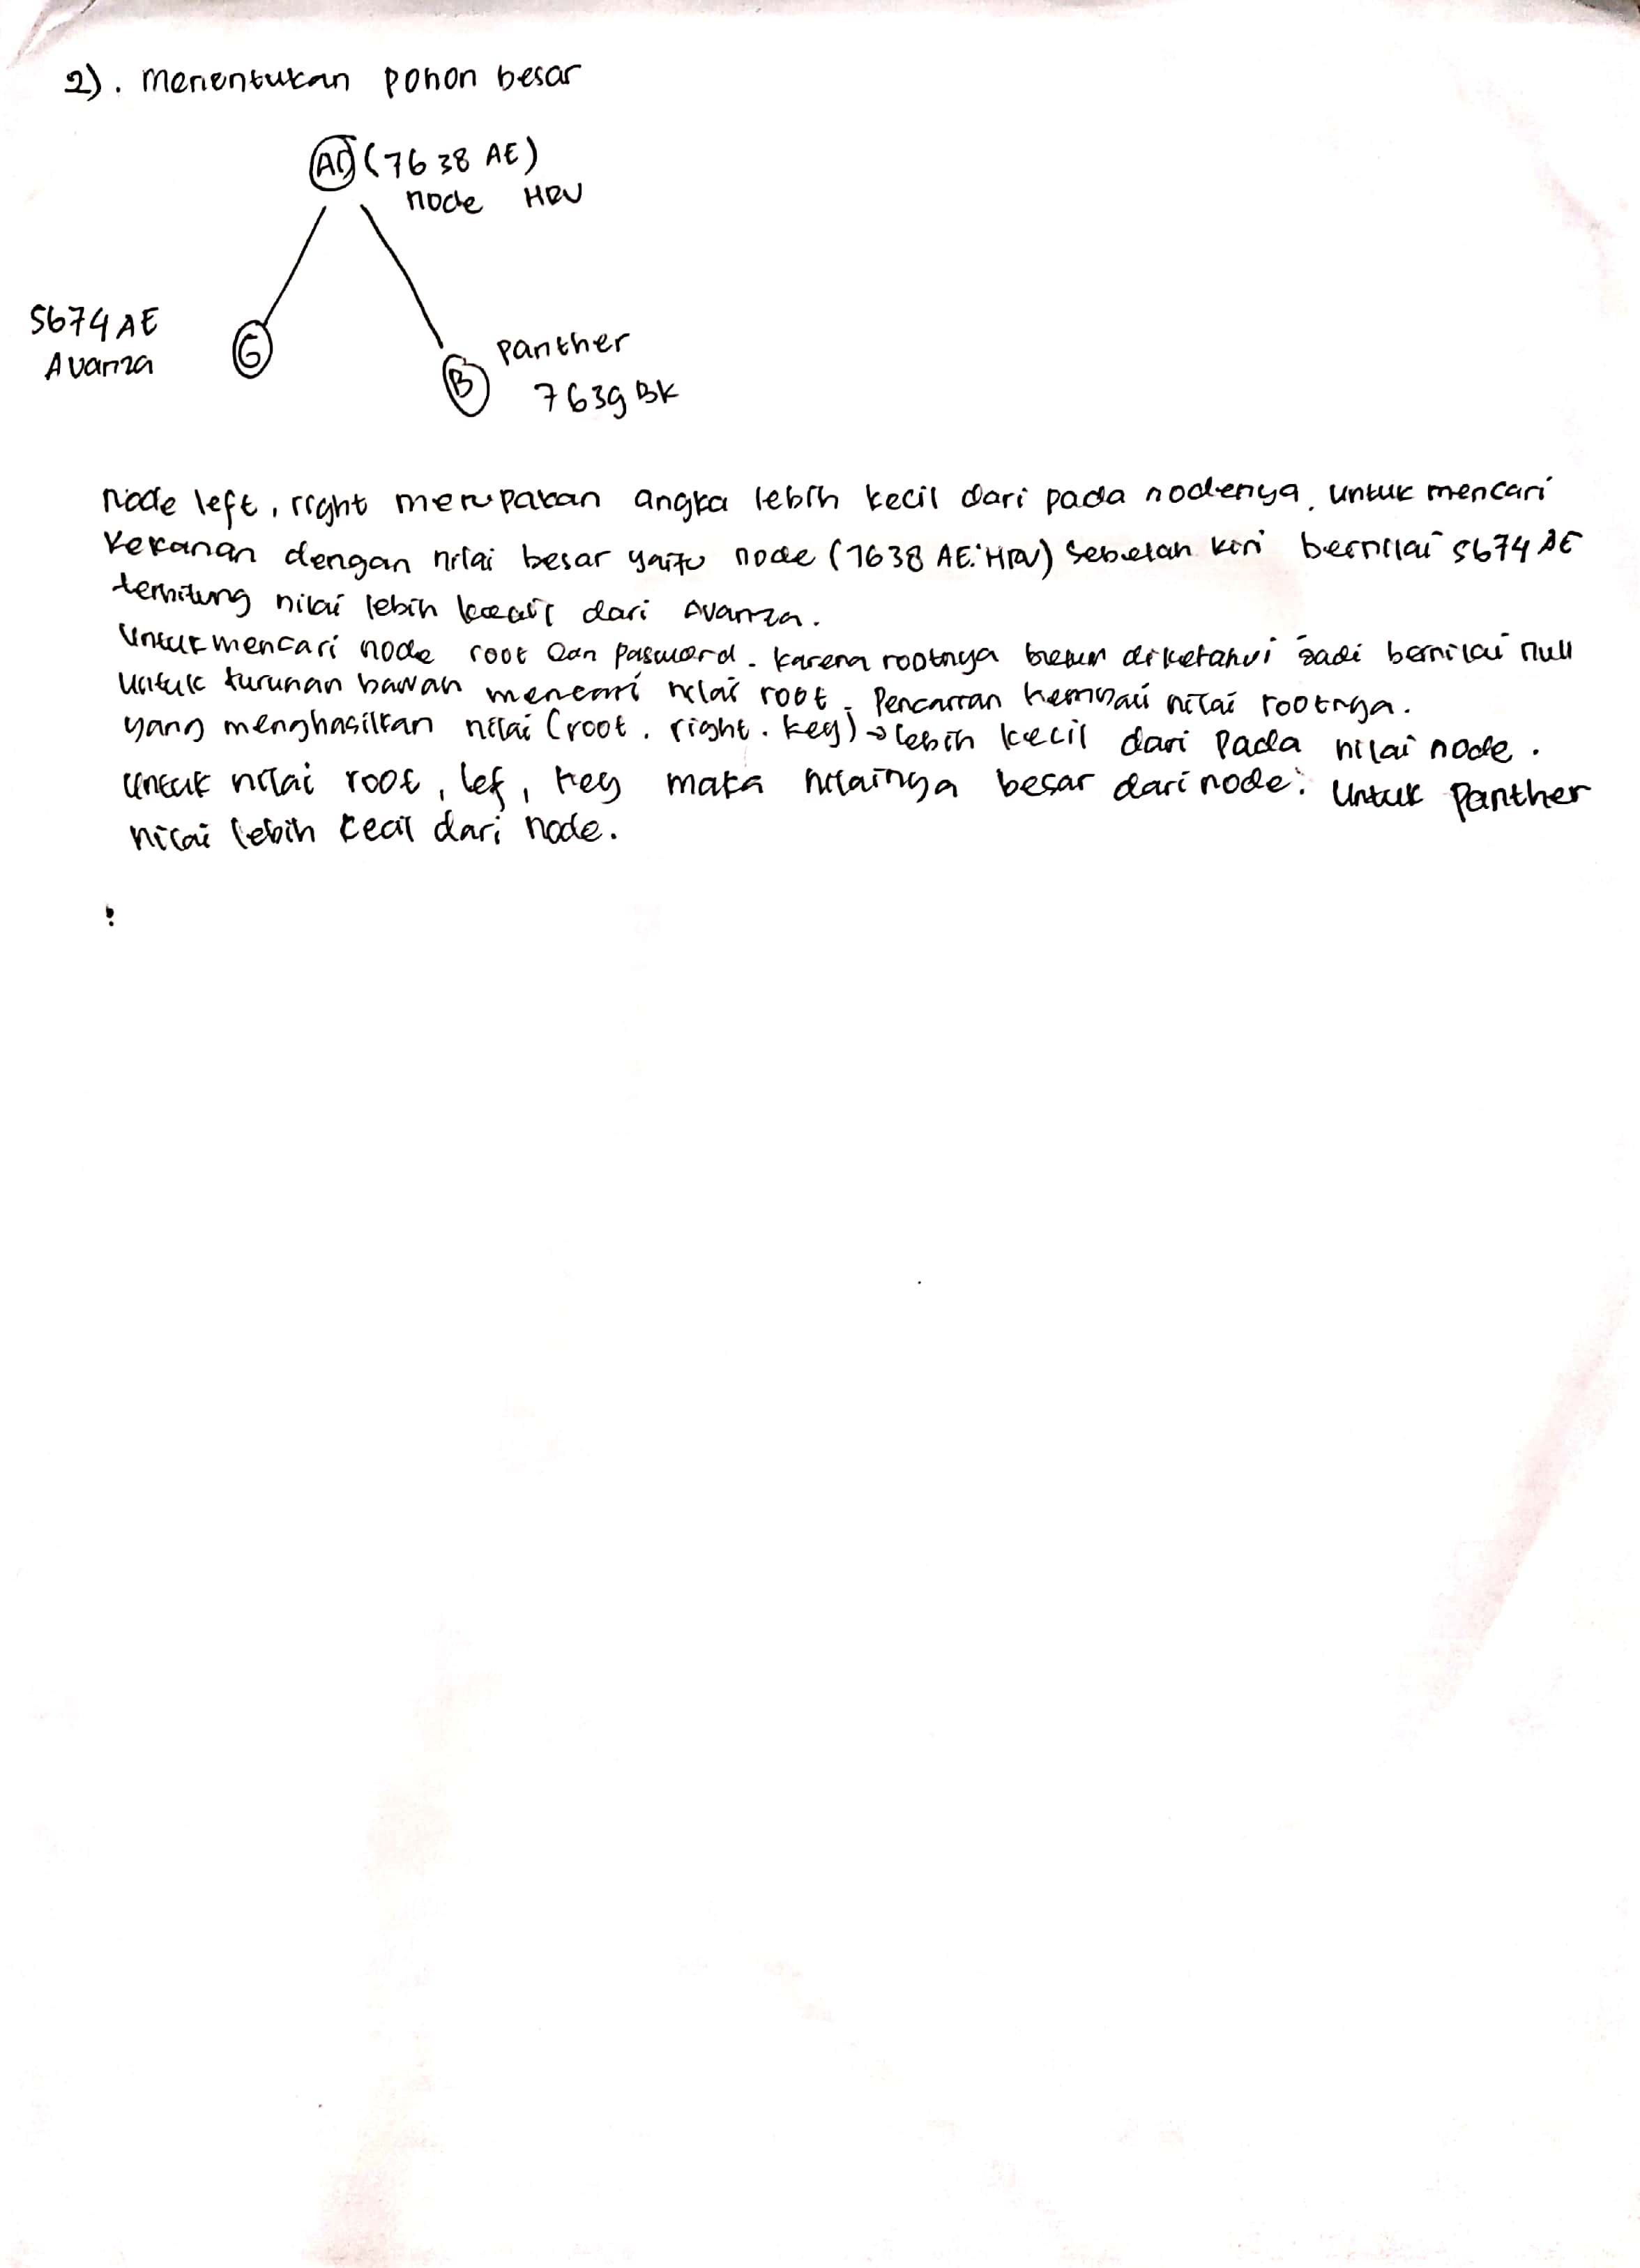 2). Menentukan pohon besar
AD (7638 AE)
node HRV
5674 AE
Avanza
G
B
panther
7639 BK
Node left, right merupakan angka lebih kecil dari pada nodenya. untuk mencari
kekanan dengan nilai besar yaitu node (7638 AE: HRV) sebelah kiri bernilai 5674 AE
terhitung nilai lebih kecil dari Avanza.
Untuk mencari node root dan pasword. karena rootnya belum diketahui jadi bernilai null
untuk turunan bawah mencari nilai root. Pencarian kembali nilai rootnya.
yang menghasilkan nilai (root. right. key) → lebih kecil dari pada nilai node.
untuk nilai root, lef, key maka nilainya besar dari node. Untuk Panther
nilai lebih kecil dari node.